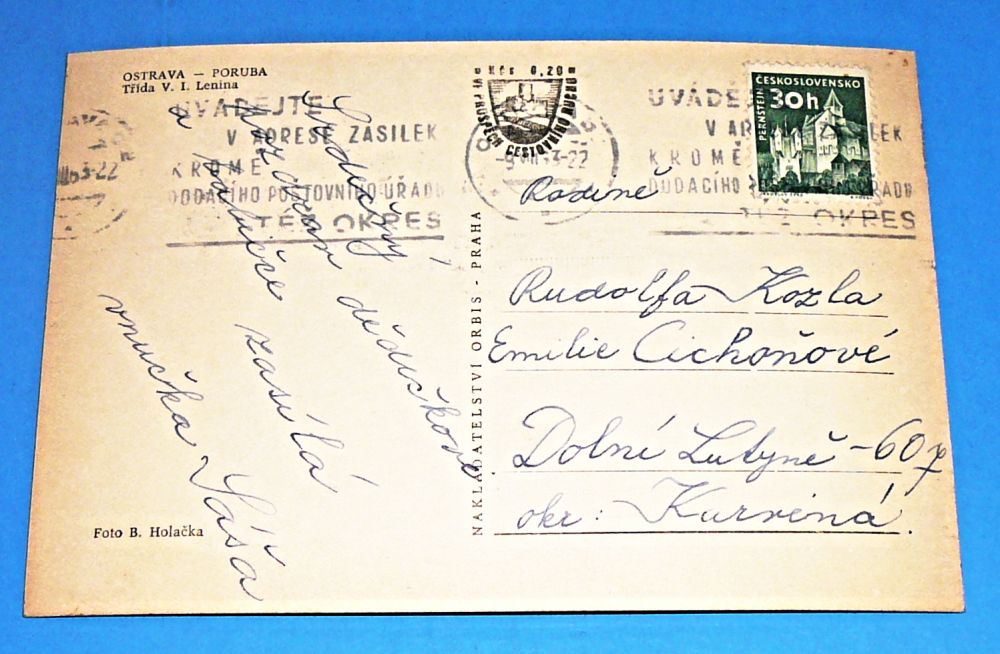 OSTRAVA — PORUBA
Třída V. I. Lenina
UVÁDĚJTE
V ADRESE ZÁSILEK
KROMĚ
DODACÍHO POŠTOVNÍHO ÚŘADU
TÉŽ OKRES
Srdečný
pozdrav dědečkovi
a babičce zasílá
vnučka Sáša
Foto B. Holačka
NAKLADATELSTVÍ ORBIS - PRAHA
Kčs 0,20
VE PROSPĚCH CESTOVNÍHO RUCHU
-9.VII.63-22
ČESKOSLOVENSKO
30h
PERNŠTEJN
UVÁDĚ
V ADR ZÁSILEK
KROMĚ
DODACÍHO ÚŘADU
TÉŽ OKRES
Rodině
Rudolfa Kozla
Emilie Cichoňové
Dolní Lutyně - 607
okr: Karviná.